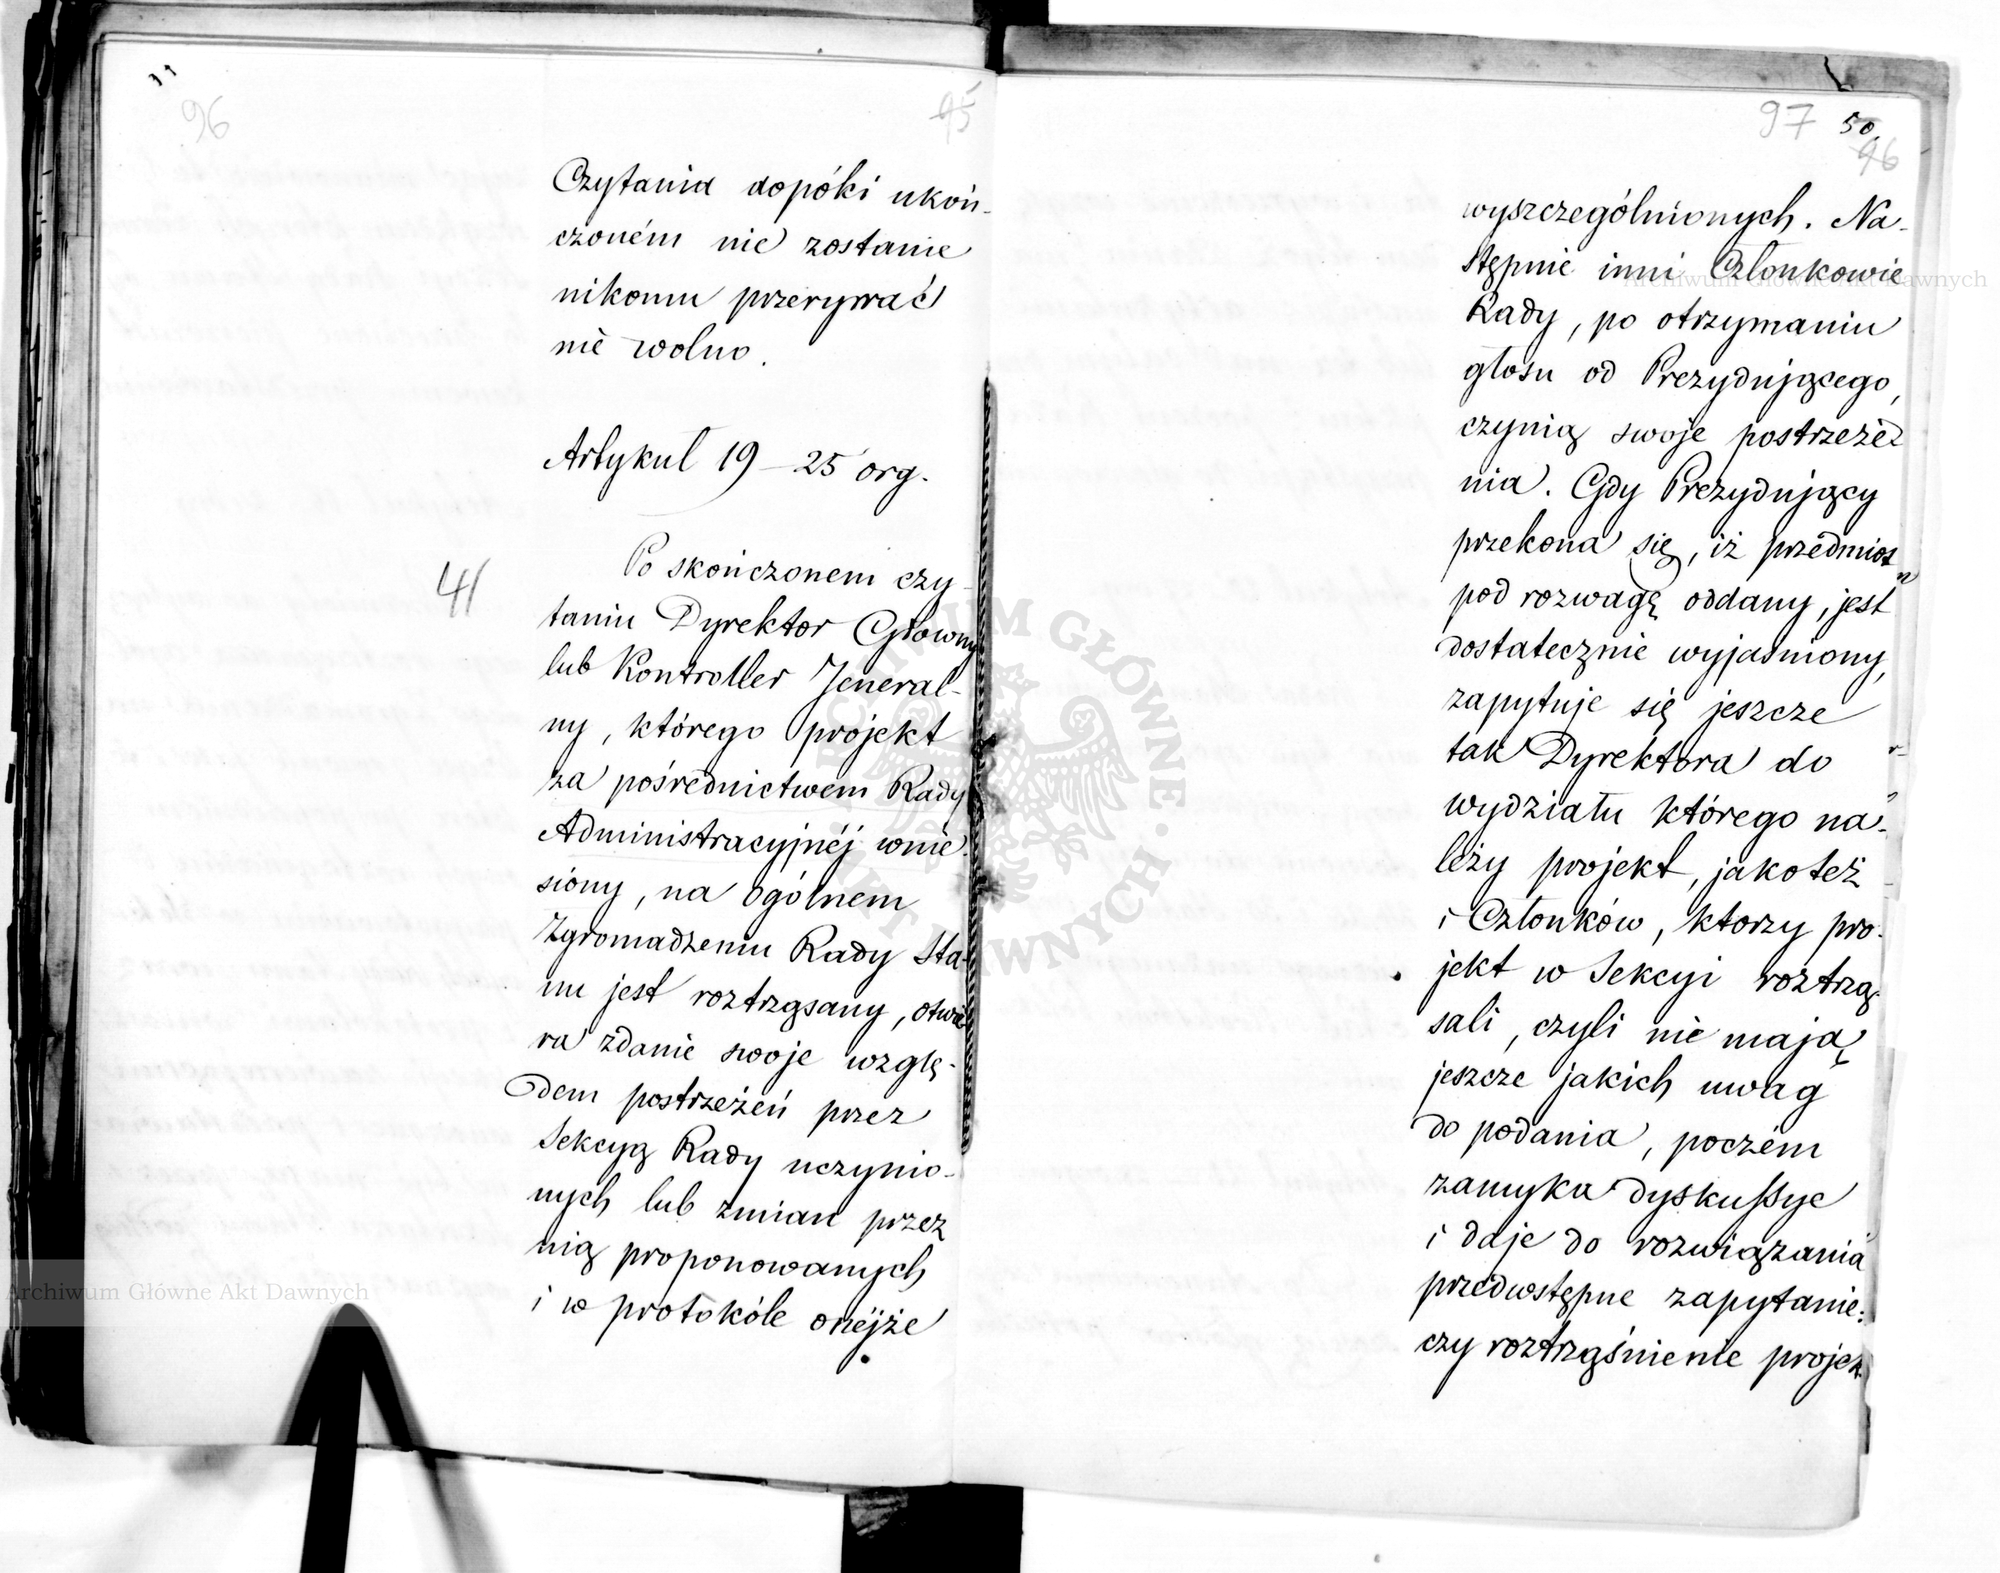 96
95
Czytania dopóki ukoń-
czoném nie zostanie
nikomu przerywać
nie wolno.
Artykuł 19 – 25 org.
41
Po skończonem czy-
taniu Dyrektor Główny
lub Kontroller Jeneral-
ny, którego projekt
za pośrednictwem Rady
Administracyjnéj wnie-
siony, na ogólnem
Zgromadzeniu Rady Sta-
nu jest roztrząsany, otwie
ra zdanie swoje wzglę-
dem postrzeżeń przez
Sekcyą Rady uczynio-
nych lub zmian przez
nią proponowanych
i w protokóle onéjże
97
50.
96
wyszczególnionych. Na-
stępnie inni Członkowie
Rady, po otrzymaniu
głosu od Prezydującego,
czynią swoje postrzeże-
nia. Gdy Prezydujący
przekona się, iż przedmiot
pod rozwagę oddany, jest
dostatecznie wyjaśniony,
zapytuje się jeszcze
tak Dyrektora do
wydziału którego na-
leży projekt, jakoteż
i Członków, ktorzy pro-
jekt w Sekcyi roztrzą-
sali, czyli nie mają
jeszcze jakich uwag
do podania, poczém
zamyka dyskussye
i daje do rozwiązania
przedwstępne zapytanie:
czy roztrząśnienie projek-
Archiwum Główne Akt Dawnych
Archiwum Główne Akt Dawnych
ARCHIWUM GŁÓWNE · AKT DAWNYCH ·